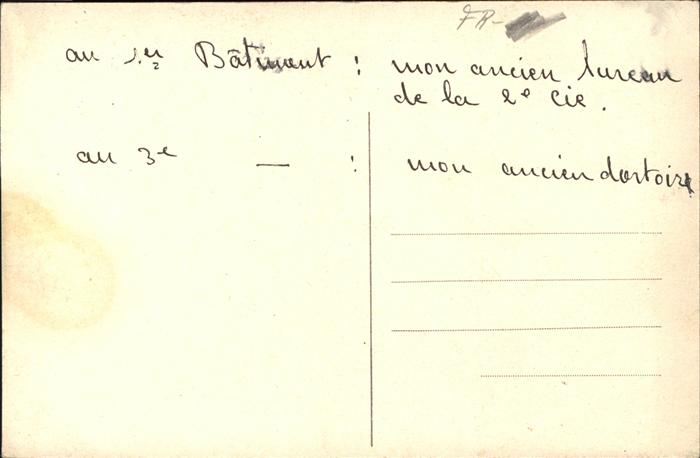 FR-
au 1er Bâtiment : mon ancien bureau
de la 2e Cie.
au 3e — : mon ancien dortoir